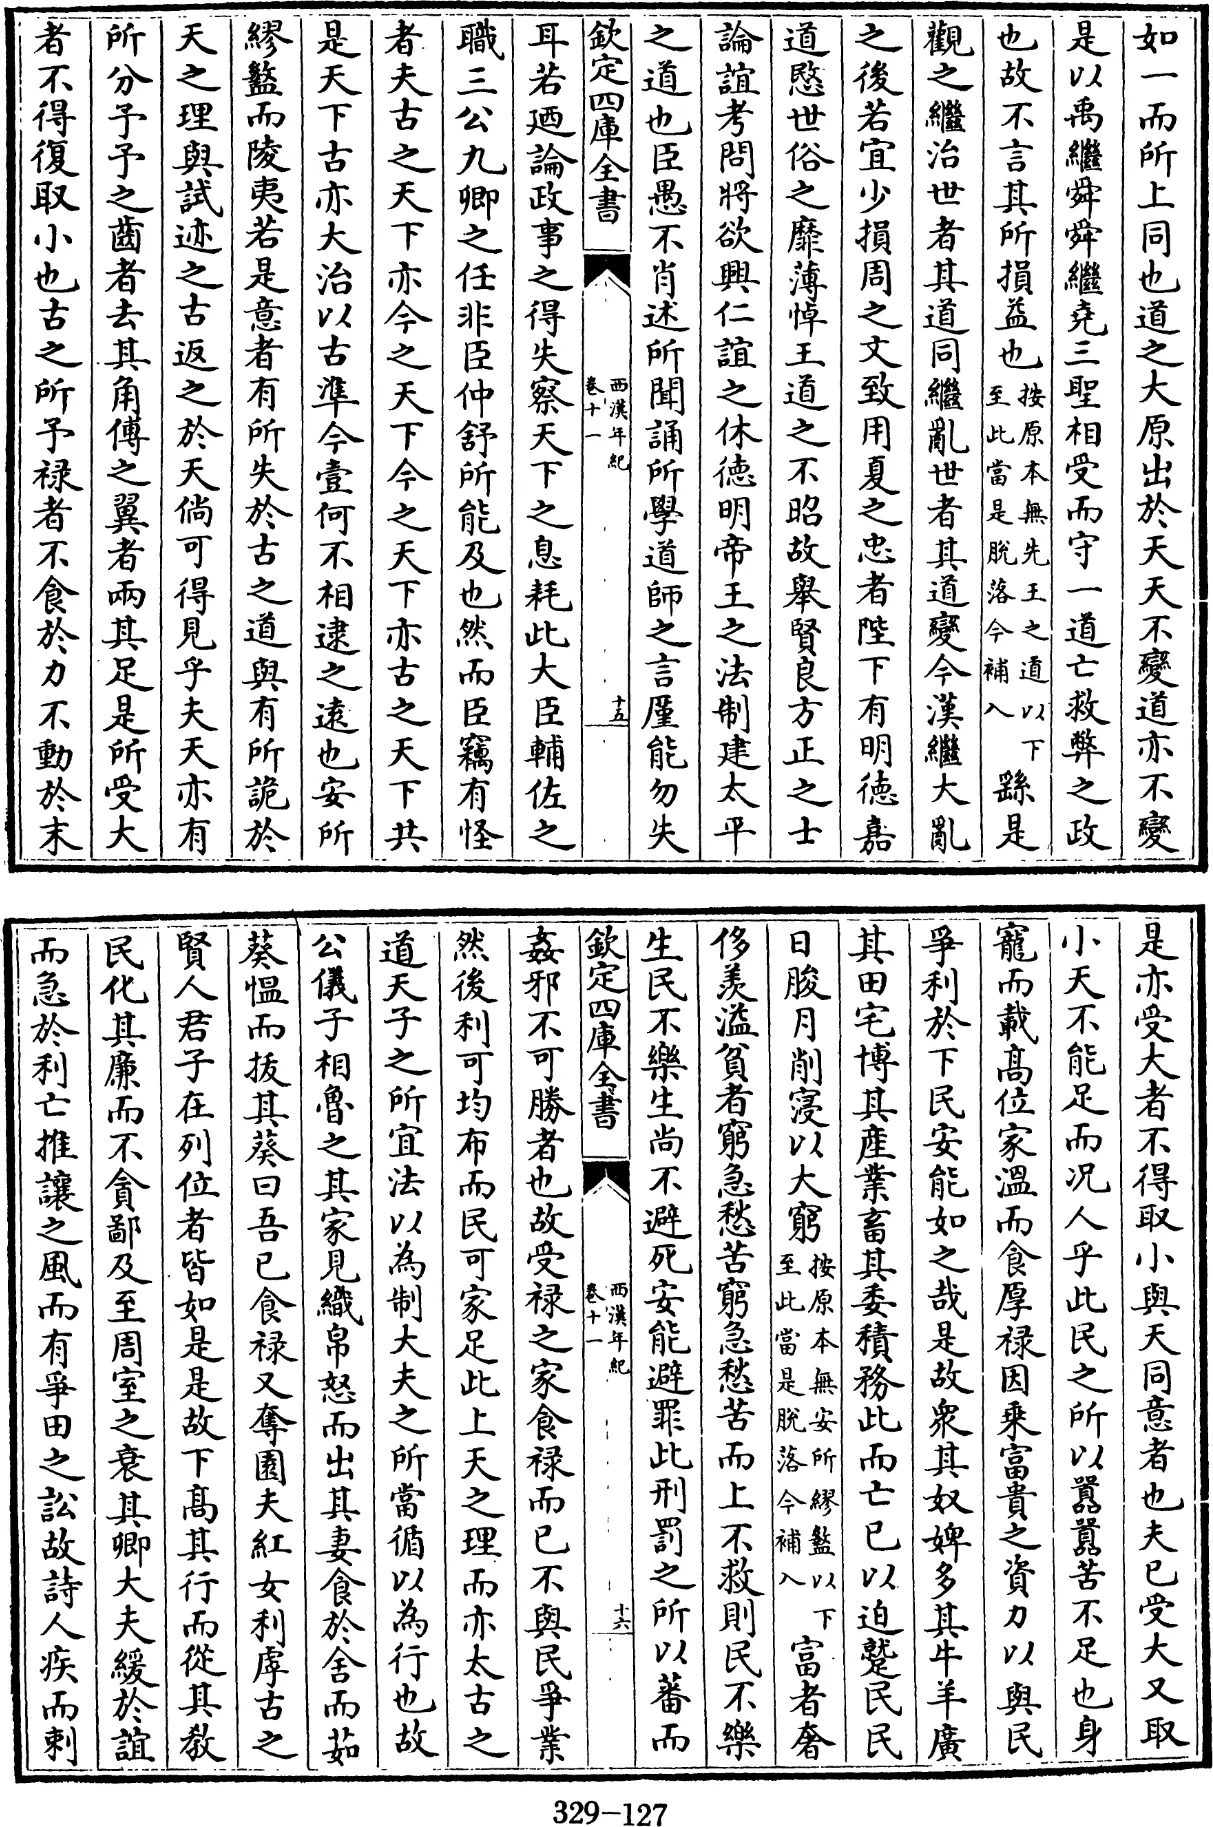 如一而所上同也道之大原出於天天不變道亦不變
是以禹繼舜舜繼堯三聖相受而守一道亡救弊之政
也故不言其所損益也按原本無先王之道以下至此當是脫落今補入繇是
觀之繼治世者其道同繼亂世者其道變今漢繼大亂
之後若宜少損周之文致用夏之忠者陛下有明德嘉
道愍世俗之靡薄悼王道之不昭故舉賢良方正之士
論誼考問將欲興仁誼之休德明帝王之法制建太平
之道也臣愚不肖述所聞誦所學道師之言厪能勿失
欽定四庫全書 西漢年紀卷十一 十五
耳若廼論政事之得失察天下之息耗此大臣輔佐之
職三公九卿之任非臣仲舒所能及也然而臣竊有怪
者夫古之天下亦今之天下今之天下亦古之天下共
是天下古亦大治以古準今壹何不相逮之遠也安所
繆盭而陵夷若是意者有所失於古之道與有所詭於
天之理與試迹之古返之於天倘可得見乎夫天亦有
所分予予之齒者去其角傅之翼者兩其足是所受大
者不得復取小也古之所予祿者不食於力不動於末
是亦受大者不得取小與天同意者也夫已受大又取
小天不能足而况人乎此民之所以囂囂苦不足也身
寵而載高位家溫而食厚祿因乘富貴之資力以與民
爭利於下民安能如之哉是故衆其奴婢多其牛羊廣
其田宅博其產業畜其委積務此而亡已以迫蹵民民
日朘月削寖以大窮按原本無安所繆盭以下至此當是脫落今補入富者奢
侈羡溢貧者窮急愁苦窮急愁苦而上不救則民不樂
生民不樂生尚不避死安能避罪此刑罰之所以蕃而
欽定四庫全書 西漢年紀卷十一 十六
姦邪不可勝者也故受祿之家食祿而已不與民爭業
然後利可均布而民可家足此上天之理而亦太古之
道天子之所宜法以為制大夫之所當循以為行也故
公儀子相魯之其家見織帛怒而出其妻食於舍而茹
葵愠而拔其葵曰吾已食祿又奪園夫紅女利虖古之
賢人君子在列位者皆如是是故下高其行而從其教
民化其廉而不貪鄙及至周室之衰其卿大夫緩於誼
而急於利亡推讓之風而有爭田之訟故詩人疾而刺
329-127